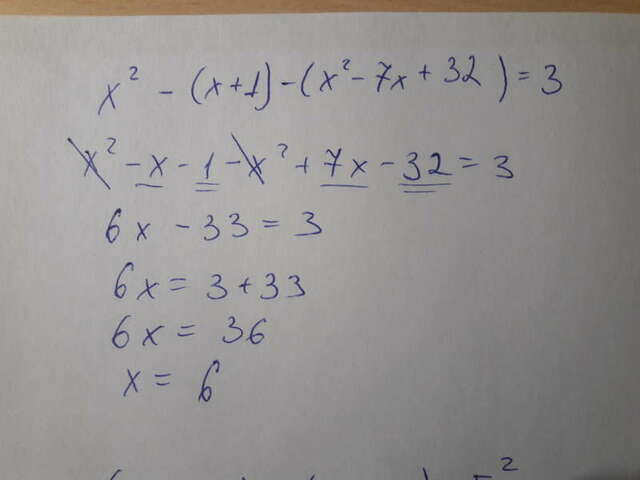 x² - (x+1) - (x² - 7x + 32) = 3
x² - x - 1 - x² + 7x - 32 = 3
6x - 33 = 3
6x = 3 + 33
6x = 36
x = 6